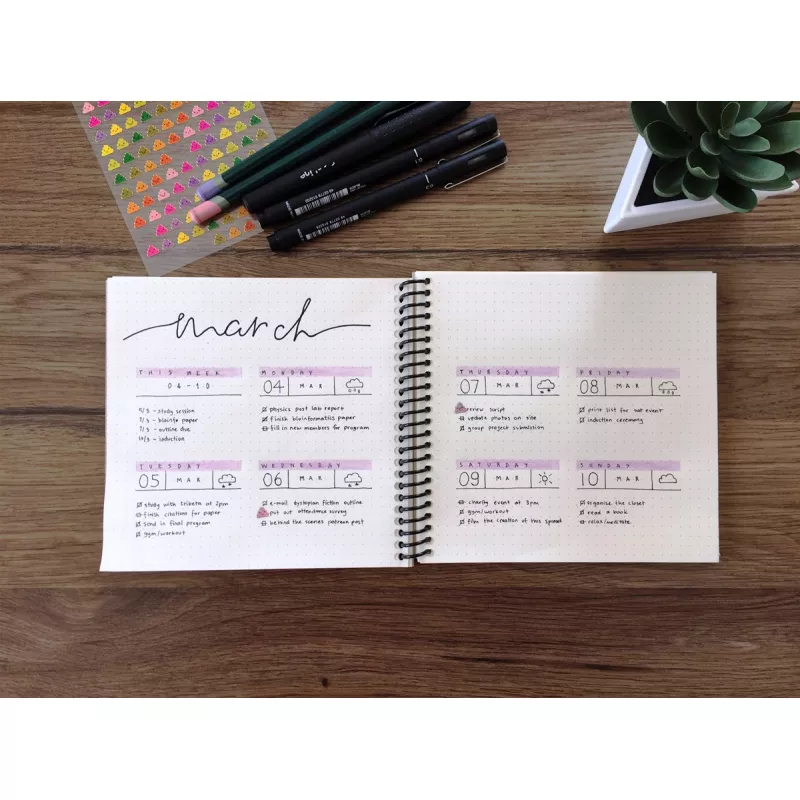 march
THIS WEEK
04-10
5/3 - study session
7/3 - bioinfo paper
7/3 - outline due
10/3 - induction
MONDAY
04 MAR
physics post lab report
finish bioinformatics paper
fill in new members for program
TUESDAY
05 MAR
study with at 2pm
finish citations for paper
send in final program
gym/workout
WEDNESDAY
06 MAR
e-mail dystopian fiction outline
put out attendance survey
behind the scenes patreon post
THURSDAY
07 MAR
review script
update photos on site
group project submission
FRIDAY
08 MAR
print list for not event
induction ceremony
SATURDAY
09 MAR
charity event at 3pm
gym/workout
film the creation of this spread
SUNDAY
10 MAR
organise the closet
read a book
relax/meditate